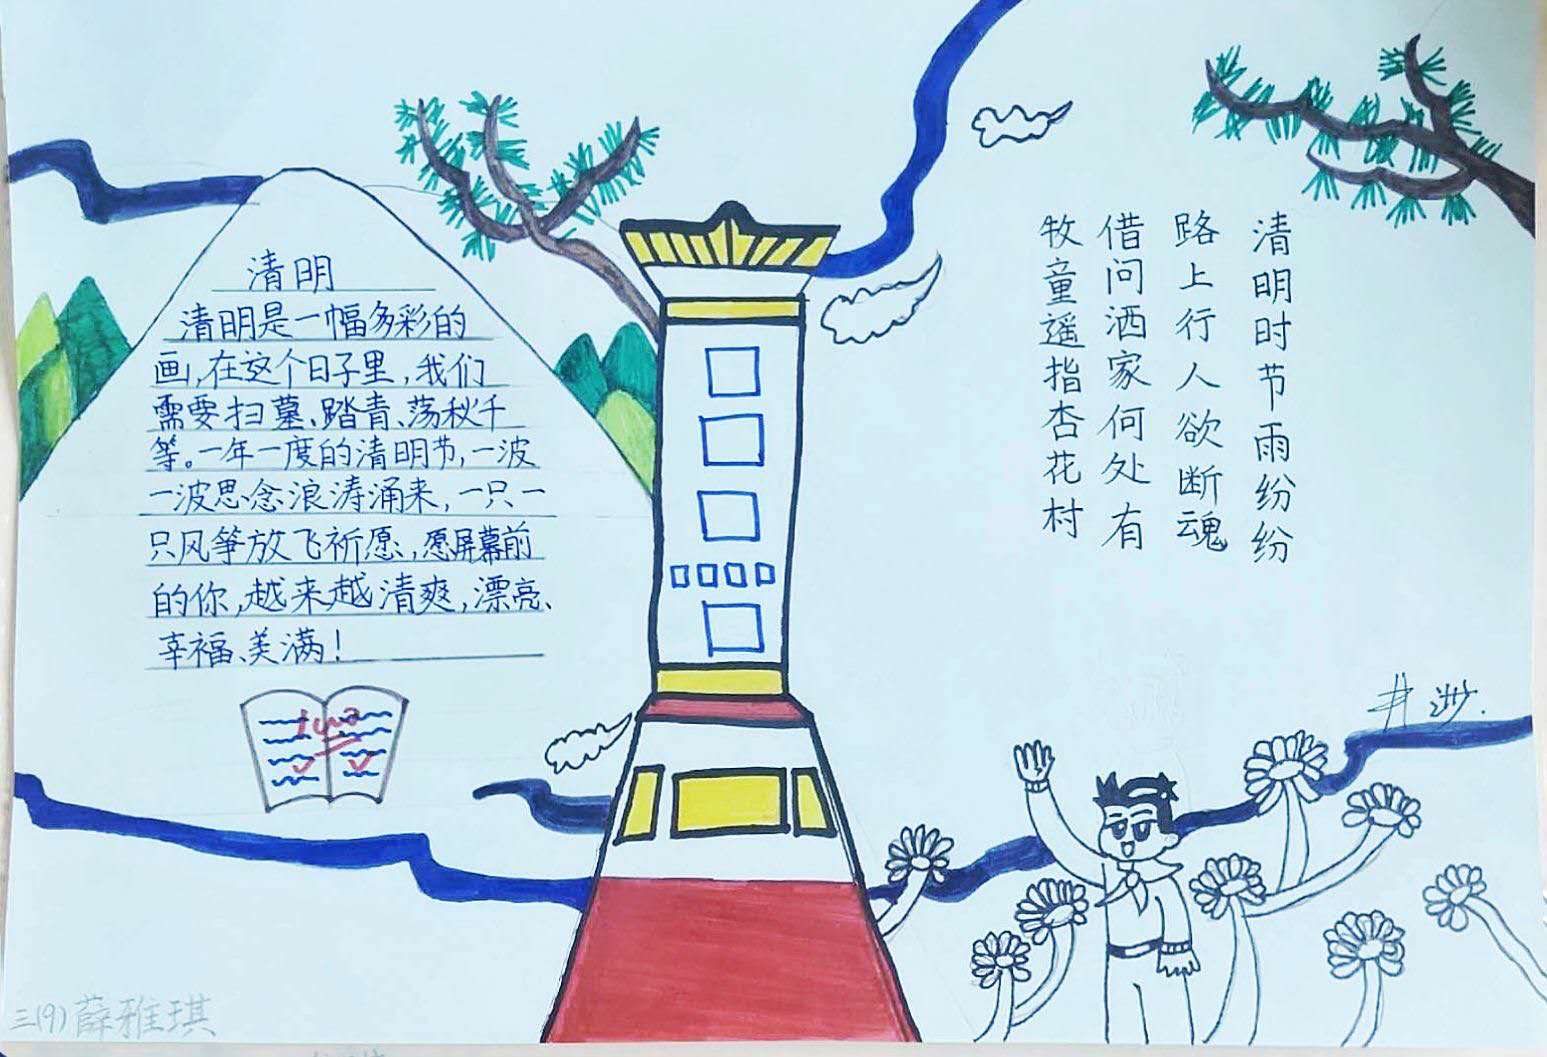 清明
清明是一幅多彩的
画,在这个日子里,我们
需要扫墓、踏青、荡秋千
等。一年一度的清明节,一波
一波思念浪涛涌来,一只一
只风筝放飞祈愿,愿屏幕前
的你,越来越清爽,漂亮、
幸福、美满!
清明时节雨纷纷
路上行人欲断魂
借问洒家何处有
牧童遥指杏花村
三(9)薛雅琪